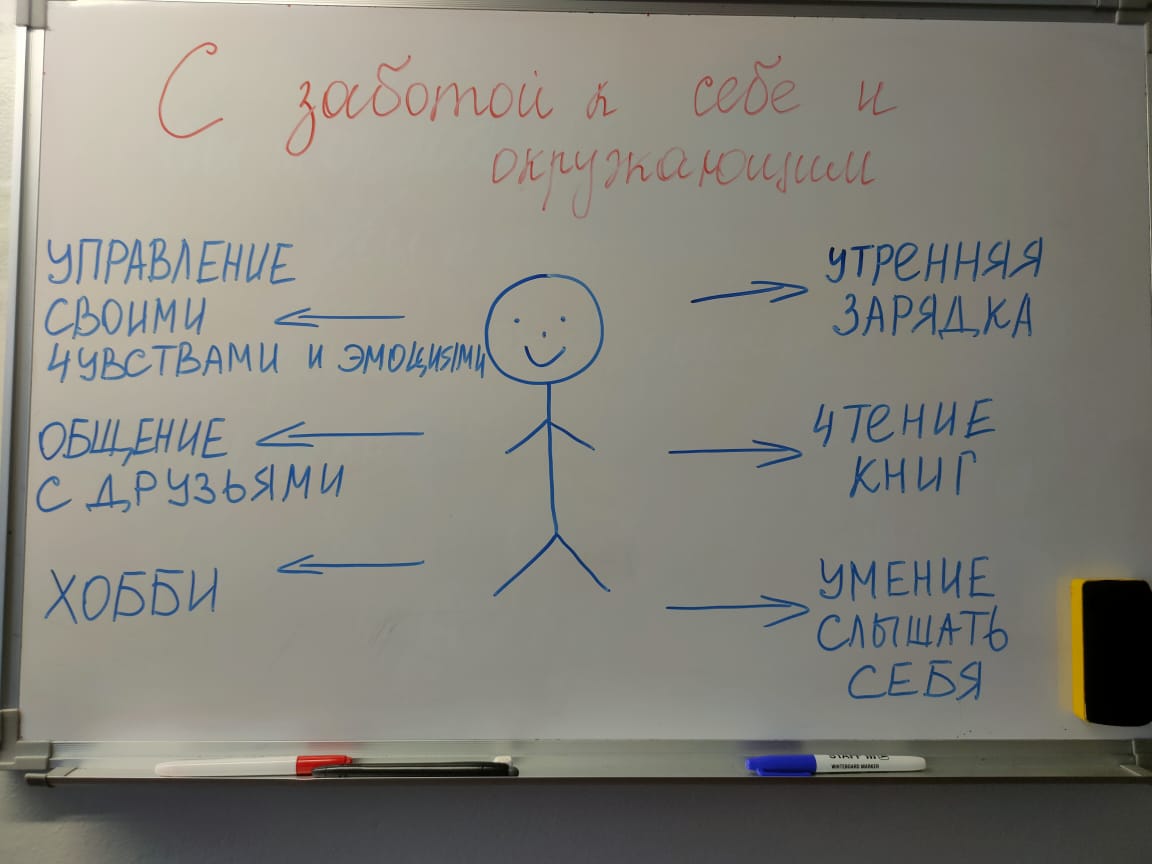 С заботой к себе и
окружающим
УПРАВЛЕНИЕ
СВОИМИ
ЧУВСТВАМИ И ЭМОЦИЯМИ
ОБЩЕНИЕ
С ДРУЗЬЯМИ
ХОББИ
УТРЕННЯЯ
ЗАРЯДКА
ЧТЕНИЕ
КНИГ
УМЕНИЕ
СЛЫШАТЬ
СЕБЯ
WHITEBOARD MARKER